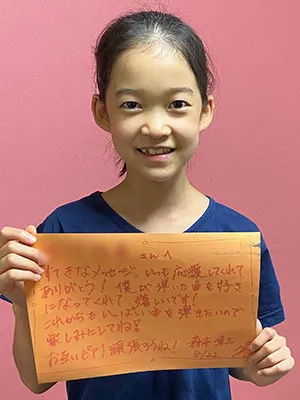 さんへ
すてきなメッセージ、いつも応援してくれて
ありがとう！僕が弾いた曲を好き
になってくれて嬉しいです！
これからもいっぱい曲を弾きたいので
楽しみにしてね！
お互いピアノ頑張ろうね！
8/22